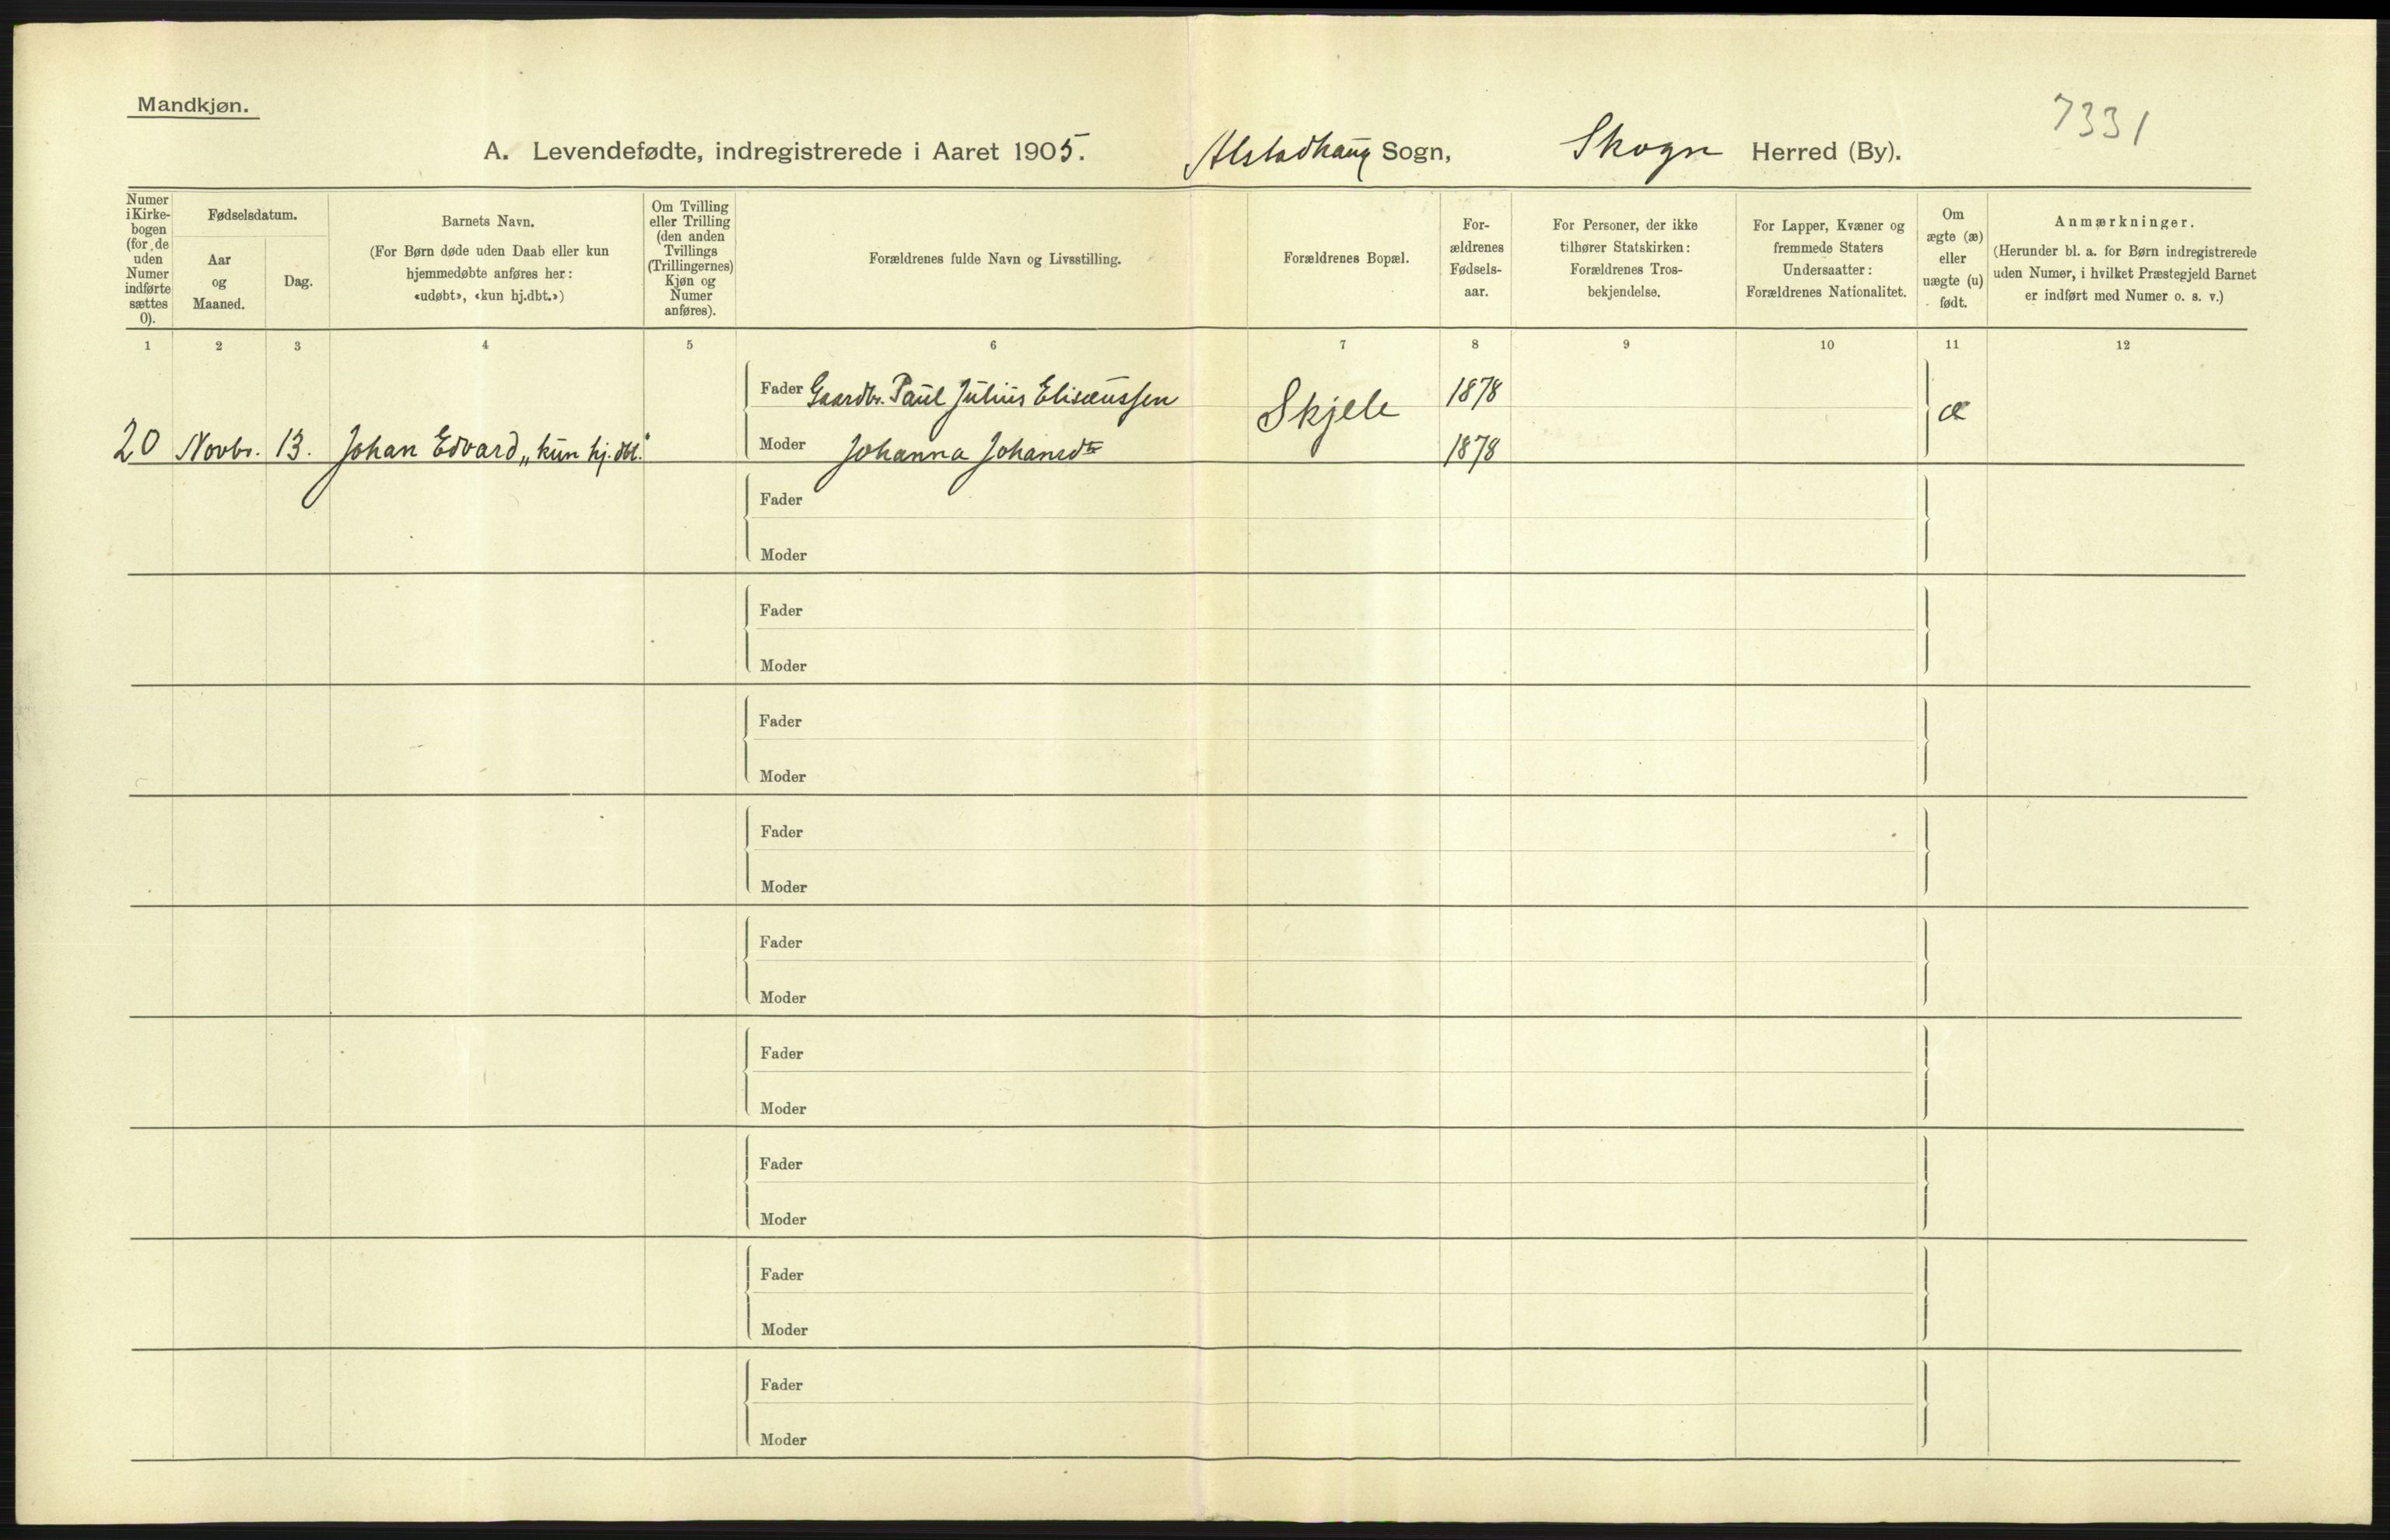 Mandkjøn.
7331
A. Levendefødte, indregistrerede i Aaret 1905. Alstadhaug Sogn, Skogn Herred (By).
Numer i Kirke-bogen (for de uden Numer indførte sættes 0).
Fødselsdatum.
Aar og Maaned.
Dag.
Barnets Navn.
(For Børn døde uden Daab eller kun
hjemmedøbte anføres her:
«udøbt», «kun hj.dbt.»)
Om Tvilling
eller Trilling
(den anden
Tvillings
(Trillingernes)
Kjøn og
Numer
anføres).
Forældrenes fulde Navn og Livsstilling.
Forældrenes Bopæl.
For-
ældrenes
Fødsels-
aar.
For Personer, der ikke
tilhører Statskirken:
Forældrenes Tros-
bekjendelse.
For Lapper, Kvæner og
fremmede Staters
Undersaatter:
Forældrenes Nationalitet.
Om
ægte (æ)
eller
uægte (u)
født.
Anmærkninger.
(Herunder bl. a. for Børn indregistrerede
uden Numer, i hvilket Præstegjeld Barnet
er indført med Numer o. s. v.)
1 2 3 4 5 6 7 8 9 10 11 12
Fader Gaardbr. Paul Julius Elisæussen Skjele 1878 æ
20 Novbr. 13. Johan Edvard „kun hj. dbt." Moder Johanna Johansdtr 1878
Fader
Moder
Fader
Moder
Fader
Moder
Fader
Moder
Fader
Moder
Fader
Moder
Fader
Moder
Fader
Moder
Fader
Moder